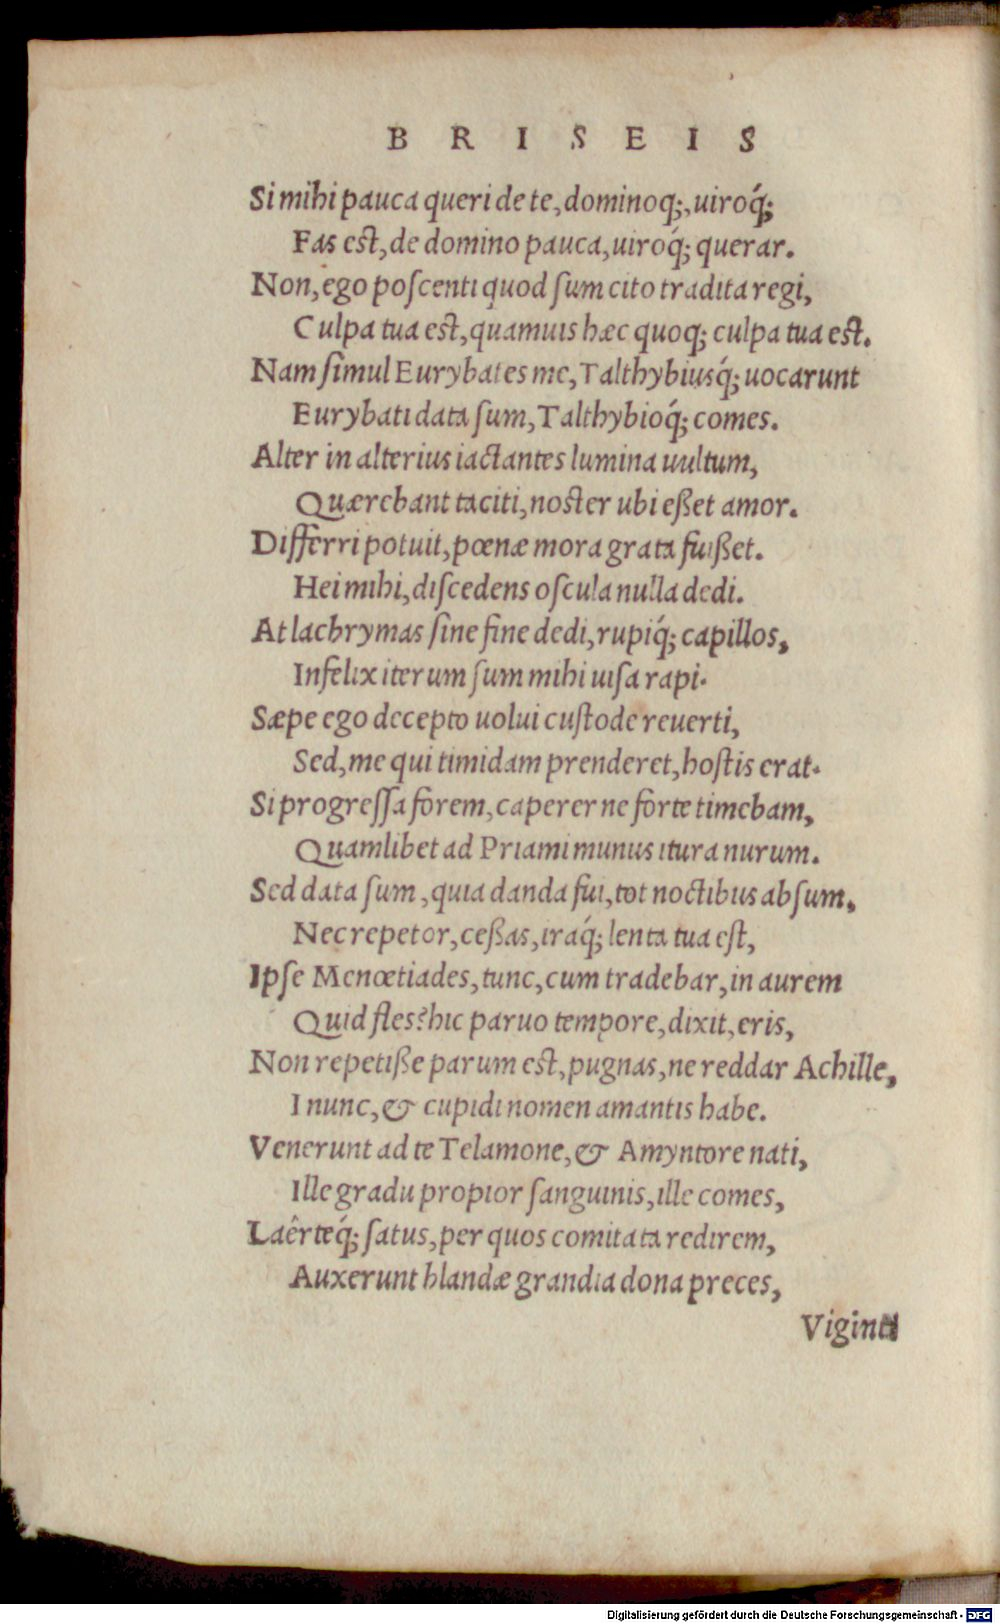 B R I S E I S
Si mihi pauca queri de te, dominoq́;, uiroq́;
Fas est, de domino pauca, uiroq́; querar.
Non, ego poscenti quod sum cito tradita regi,
Culpa tua est, quamuis hæc quoq; culpa tua est.
Nam simul Eurybates me, Talthybiusq́; uocarunt
Eurybati data sum, Talthybioq́; comes.
Alter in alterius iactantes lumina uultum,
Quærebant taciti, noster ubi eßet amor.
Differri potuit, pœnæ mora grata fuißet.
Hei mihi, discedens oscula nulla dedi.
At lachrymas sine fine dedi, rupiq́; capillos,
Infelix iterum sum mihi uisa rapi.
Sæpe ego decepto uolui custode reuerti,
Sed, me qui timidam prenderet, hostis erat.
Si progressa forem, caperer ne forte timebam,
Quamlibet ad Priami munus itura nurum.
Sed data sum, quia danda fui, tot noctibus absum,
Nec repetor, ceßas, iraq́; lenta tua est,
Ipse Menœtiades, tunc, cum tradebar, in aurem
Quid fles? hic paruo tempore, dixit, eris,
Non repetiße parum est, pugnas, ne reddar Achille,
I nunc, & cupidi nomen amantis habe.
Venerunt ad te Telamone, & Amyntore nati,
Ille gradu propior sanguinis, ille comes,
Laêrteq́; satus, per quos comitata redirem,
Auxerunt blandæ grandia dona preces,
Viginti
Digitalisierung gefördert durch die Deutsche Forschungsgemeinschaft - DFG